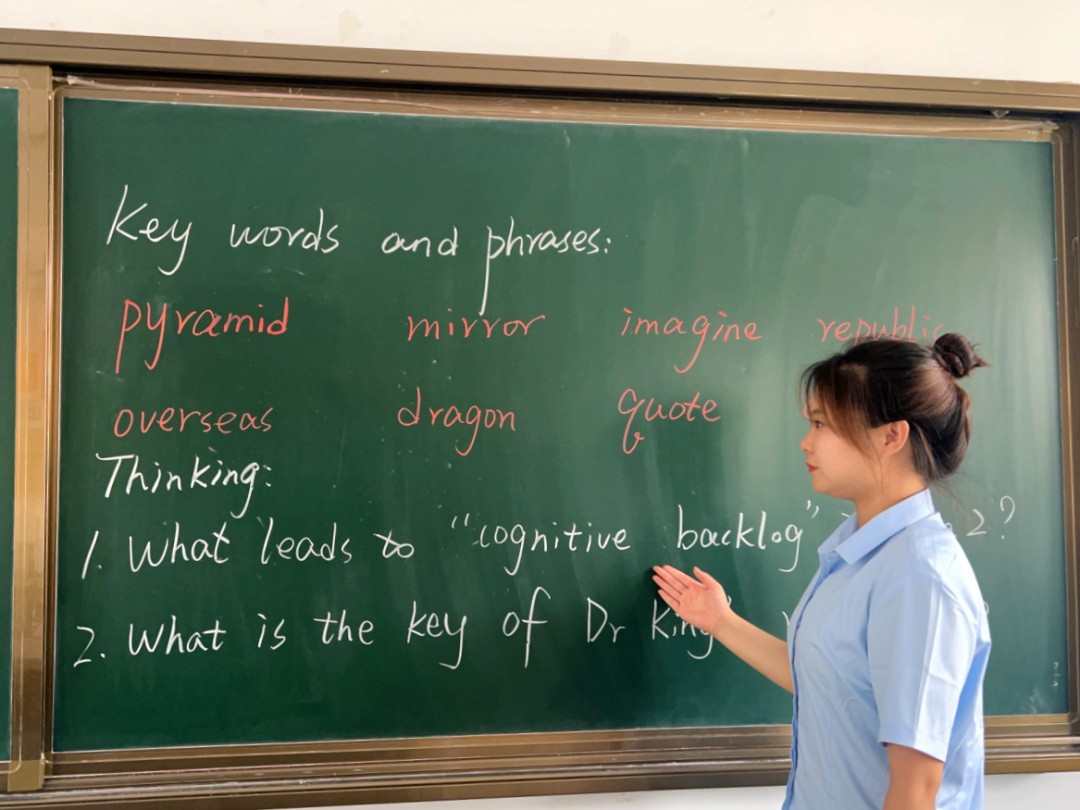 Key words and phrases:
pyramid mirror imagine republic
overseas dragon quote
Thinking:
1. What leads to "cognitive backlog" 2?
2. What is the key of Dr King's